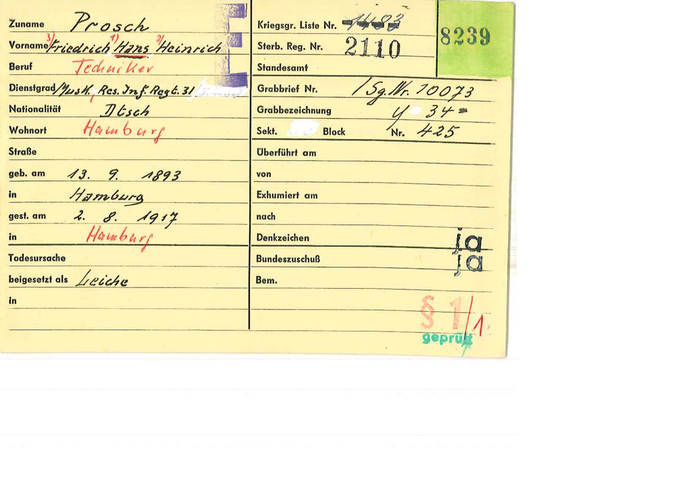 Zuname Prosch
Vorname 3) Friedrich 1) Hans 2) Heinrich
Beruf Techniker
Dienstgrad Musk. Res. Inf. Regt. 31
Nationalität Dtsch
Wohnort Hamburg
Straße
geb. am 13. 9. 1893
in Hamburg
gest. am 2. 8. 1917
in Hamburg
Todesursache
beigesetzt als Leiche
in
Kriegsgr. Liste Nr. 1483
Sterb. Reg. Nr. 2110
8239
Standesamt
Grabbrief Nr. / Sg. Nr. 10073
Grabbezeichnung Y 34
Sekt. Block Nr. 425
Überführt am
von
Exhumiert am
nach
Denkzeichen ja
Bundeszuschuß ja
Bem.
§ 1/1.
geprüft